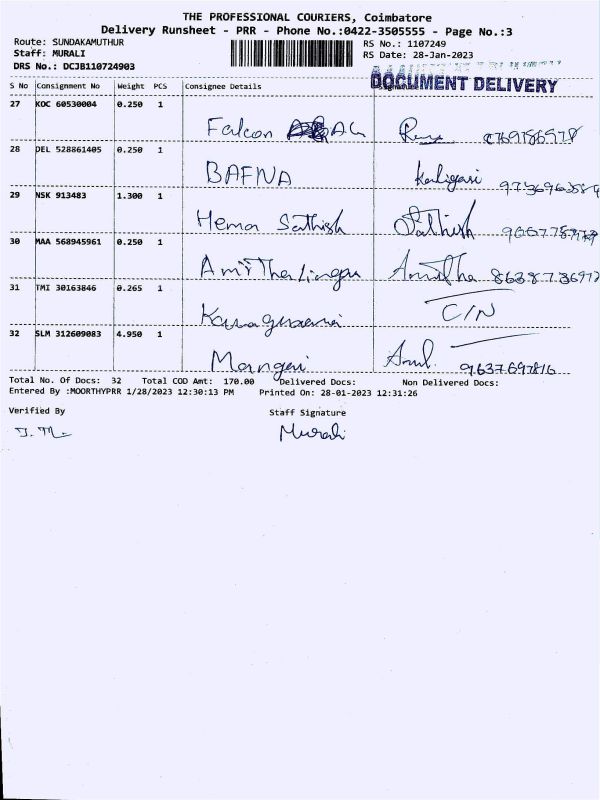 THE PROFESSIONAL COURIERS, Coimbatore
Delivery Runsheet - PRR - Phone No.:0422-3505555 - Page No.:3
Route: SUNDAKAMUTHUR
RS No.: 1107249
Staff: MURALI
RS Date: 28-Jan-2023
DRS No.: DCJB110724903
DOCUMENT DELIVERY
S No Consignment No Weight PCS Consignee Details
27 KOC 60530004 0.250 1
Falcon
28 DEL 528861405 0.250 1
BAFNA
29 NSK 913483 1.300 1
Hema Sathish Sathish
30 MAA 568945961 0.250 1
Amirthalingam Amirtha
31 TMI 30163846 0.265 1
C/N
32 SLM 312609083 4.950 1
Total No. Of Docs: 32 Total COD Amt: 170.00 Delivered Docs: Non Delivered Docs:
Entered By :MOORTHYPRR 1/28/2023 12:30:13 PM Printed On: 28-01-2023 12:31:26
Verified By Staff Signature
Murali